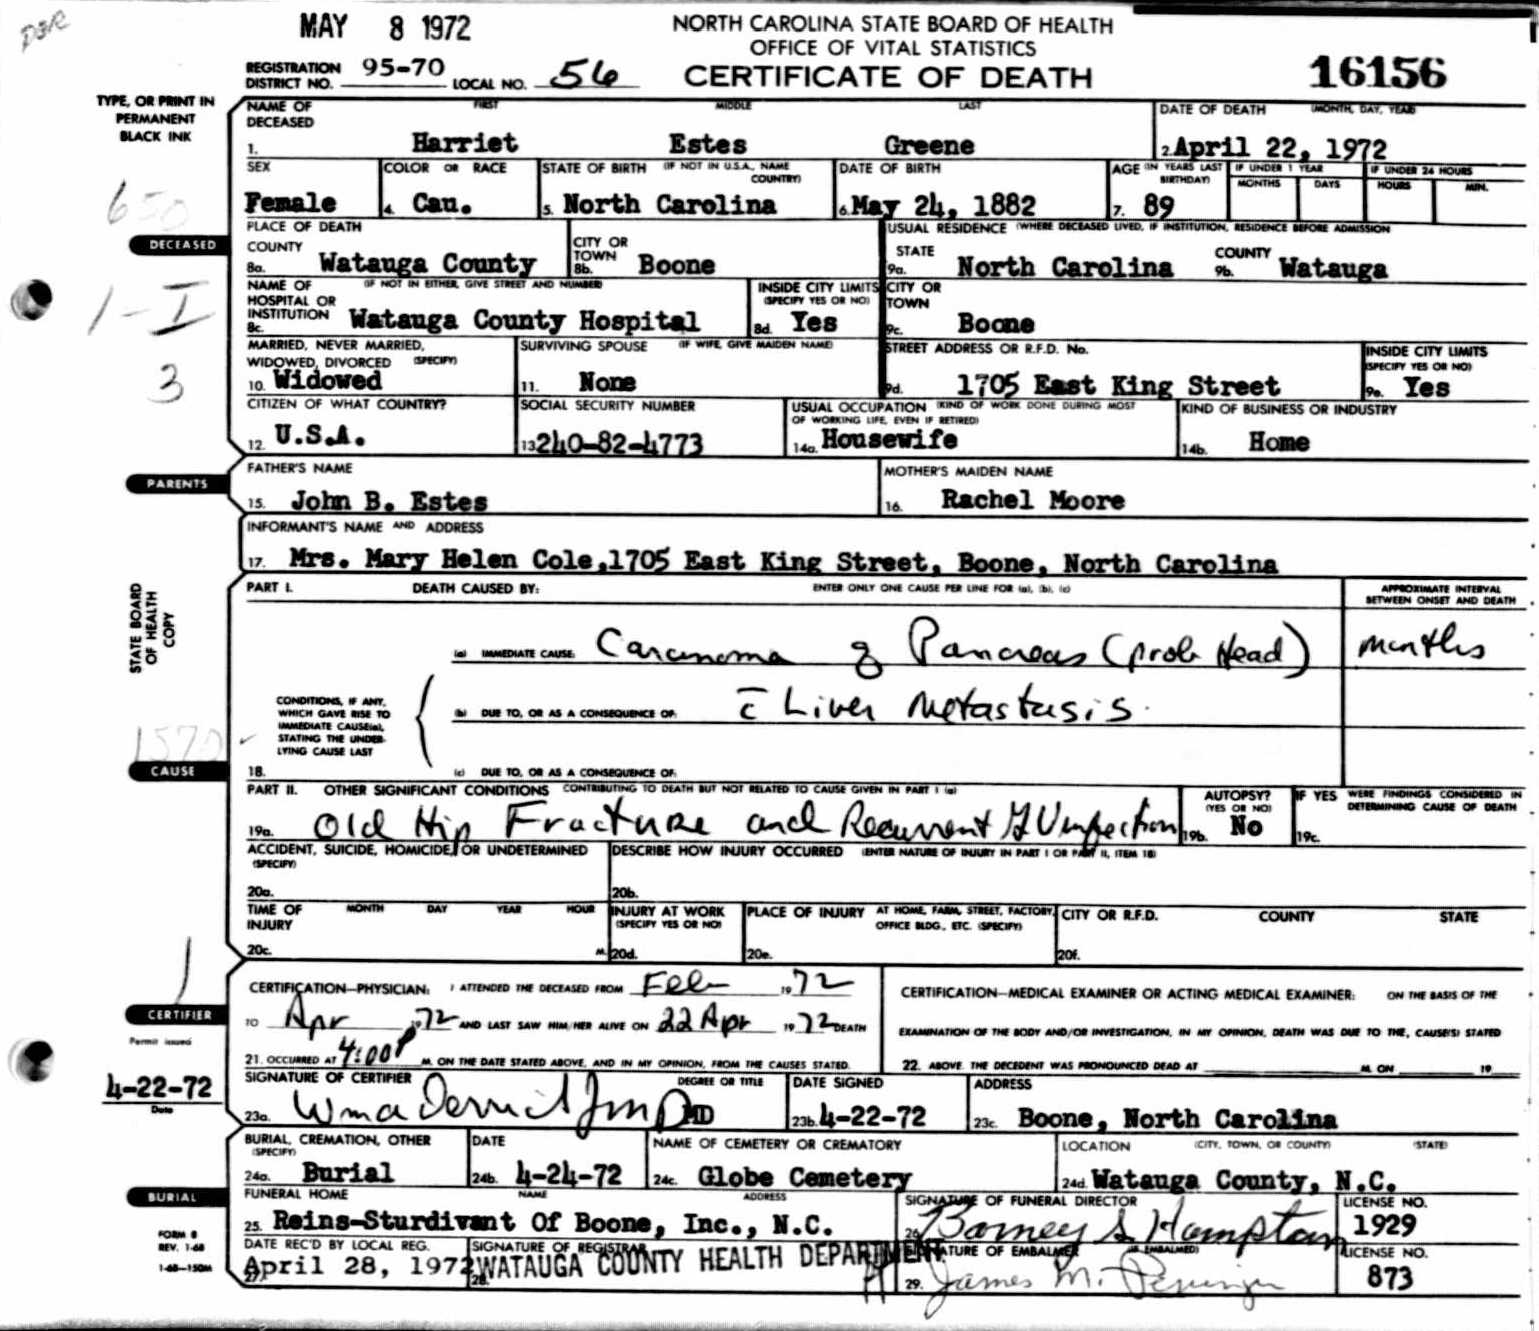 DBR
MAY 8 1972
NORTH CAROLINA STATE BOARD OF HEALTH
OFFICE OF VITAL STATISTICS
CERTIFICATE OF DEATH
REGISTRATION DISTRICT NO. 95-70 LOCAL NO. 56
16156
TYPE, OR PRINT IN
PERMANENT
BLACK INK
NAME OF DECEASED FIRST MIDDLE LAST
1. Harriet Estes Greene
DATE OF DEATH (MONTH, DAY, YEAR)
2. April 22, 1972
SEX
Female
COLOR OR RACE
4. Cau.
STATE OF BIRTH (IF NOT IN U.S.A., NAME COUNTRY)
5. North Carolina
DATE OF BIRTH
6. May 24, 1882
AGE (IN YEARS LAST BIRTHDAY)
7. 89
IF UNDER 1 YEAR
MONTHS DAYS
IF UNDER 24 HOURS
HOURS MIN.
650
DECEASED
1-I
3
PLACE OF DEATH
COUNTY
8a. Watauga County
CITY OR TOWN
8b. Boone
USUAL RESIDENCE (WHERE DECEASED LIVED, IF INSTITUTION, RESIDENCE BEFORE ADMISSION
STATE
9a. North Carolina
COUNTY
9b. Watauga
NAME OF HOSPITAL OR INSTITUTION (IF NOT IN EITHER, GIVE STREET AND NUMBER)
8c. Watauga County Hospital
INSIDE CITY LIMITS (SPECIFY YES OR NO)
8d. Yes
CITY OR TOWN
9c. Boone
MARRIED, NEVER MARRIED, WIDOWED, DIVORCED (SPECIFY)
10. Widowed
SURVIVING SPOUSE (IF WIFE, GIVE MAIDEN NAME)
11. None
STREET ADDRESS OR R.F.D. No.
9d. 1705 East King Street
INSIDE CITY LIMITS (SPECIFY YES OR NO)
9e. Yes
CITIZEN OF WHAT COUNTRY?
12. U.S.A.
SOCIAL SECURITY NUMBER
13. 240-82-4773
USUAL OCCUPATION (KIND OF WORK DONE DURING MOST OF WORKING LIFE, EVEN IF RETIRED)
14a. Housewife
KIND OF BUSINESS OR INDUSTRY
14b. Home
PARENTS
FATHER'S NAME
15. John B. Estes
MOTHER'S MAIDEN NAME
16. Rachel Moore
INFORMANT'S NAME AND ADDRESS
17. Mrs. Mary Helen Cole, 1705 East King Street, Boone, North Carolina
STATE BOARD
OF HEALTH
COPY
PART I. DEATH CAUSED BY: ENTER ONLY ONE CAUSE PER LINE FOR (a), (b), (c)
APPROXIMATE INTERVAL BETWEEN ONSET AND DEATH
(a) IMMEDIATE CAUSE: Carcinoma of Pancreas (prob Head) months
CONDITIONS, IF ANY, WHICH GAVE RISE TO IMMEDIATE CAUSE(a), STATING THE UNDERLYING CAUSE LAST
(b) DUE TO, OR AS A CONSEQUENCE OF: c̄ Liver Metastasis.
18. (c) DUE TO, OR AS A CONSEQUENCE OF:
1570
CAUSE
PART II. OTHER SIGNIFICANT CONDITIONS CONTRIBUTING TO DEATH BUT NOT RELATED TO CAUSE GIVEN IN PART I (a)
19a. Old Hip Fracture and Recurrent GU infection
AUTOPSY? (YES OR NO)
19b. No
IF YES WERE FINDINGS CONSIDERED IN DETERMINING CAUSE OF DEATH
19c.
ACCIDENT, SUICIDE, HOMICIDE, OR UNDETERMINED (SPECIFY)
20a.
DESCRIBE HOW INJURY OCCURRED (ENTER NATURE OF INJURY IN PART I OR PART II, ITEM 18)
20b.
TIME OF INJURY MONTH DAY YEAR HOUR
20c. M.
INJURY AT WORK (SPECIFY YES OR NO)
20d.
PLACE OF INJURY AT HOME, FARM, STREET, FACTORY, OFFICE BLDG., ETC. (SPECIFY)
20e.
CITY OR R.F.D. COUNTY STATE
20f.
CERTIFIER
Permit issued
4-22-72
Date
CERTIFICATION—PHYSICIAN: I ATTENDED THE DECEASED FROM Feb 1972
TO Apr 1972 AND LAST SAW HIM/HER ALIVE ON 22 Apr 1972 DEATH
21. OCCURRED AT 4:00 P M. ON THE DATE STATED ABOVE, AND IN MY OPINION, FROM THE CAUSES STATED.
CERTIFICATION—MEDICAL EXAMINER OR ACTING MEDICAL EXAMINER: ON THE BASIS OF THE
EXAMINATION OF THE BODY AND/OR INVESTIGATION, IN MY OPINION, DEATH WAS DUE TO THE, CAUSE(S) STATED
22. ABOVE. THE DECEDENT WAS PRONOUNCED DEAD AT M. ON 19
SIGNATURE OF CERTIFIER DEGREE OR TITLE
23a. MD
DATE SIGNED
23b. 4-22-72
ADDRESS
23c. Boone, North Carolina
BURIAL, CREMATION, OTHER (SPECIFY)
24a. Burial
DATE
24b. 4-24-72
NAME OF CEMETERY OR CREMATORY
24c. Globe Cemetery
LOCATION (CITY, TOWN, OR COUNTY) (STATE)
24d. Watauga County, N.C.
BURIAL
FORM 8
REV. 1-68
1-68—150M
FUNERAL HOME NAME ADDRESS
25. Reins-Sturdivant Of Boone, Inc., N.C.
SIGNATURE OF FUNERAL DIRECTOR
26. Barney S Hampton
LICENSE NO.
1929
DATE REC'D BY LOCAL REG.
27. April 28, 1972
SIGNATURE OF REGISTRAR
28. WATAUGA COUNTY HEALTH DEPARTMENT
SIGNATURE OF EMBALMER (IF EMBALMED)
29. James M.
LICENSE NO.
873